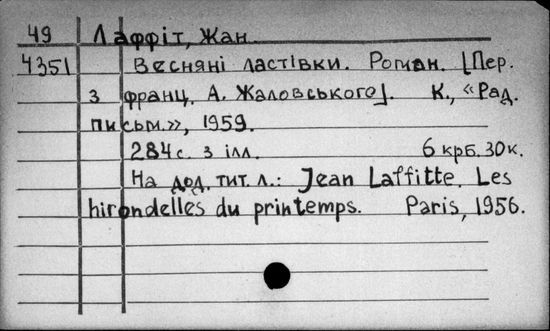 49 Лаффіт, Жан.
4351 Весняні ластівки. Роман. [Пер.
з франц. А. Жаловського]. К., «Рад.
письм.», 1959.
284 с. з ілл. 6 крб. 30 к.
На дод. тит. л.: Jean Laffitte. Les
hirondelles du printemps. Paris, 1956.